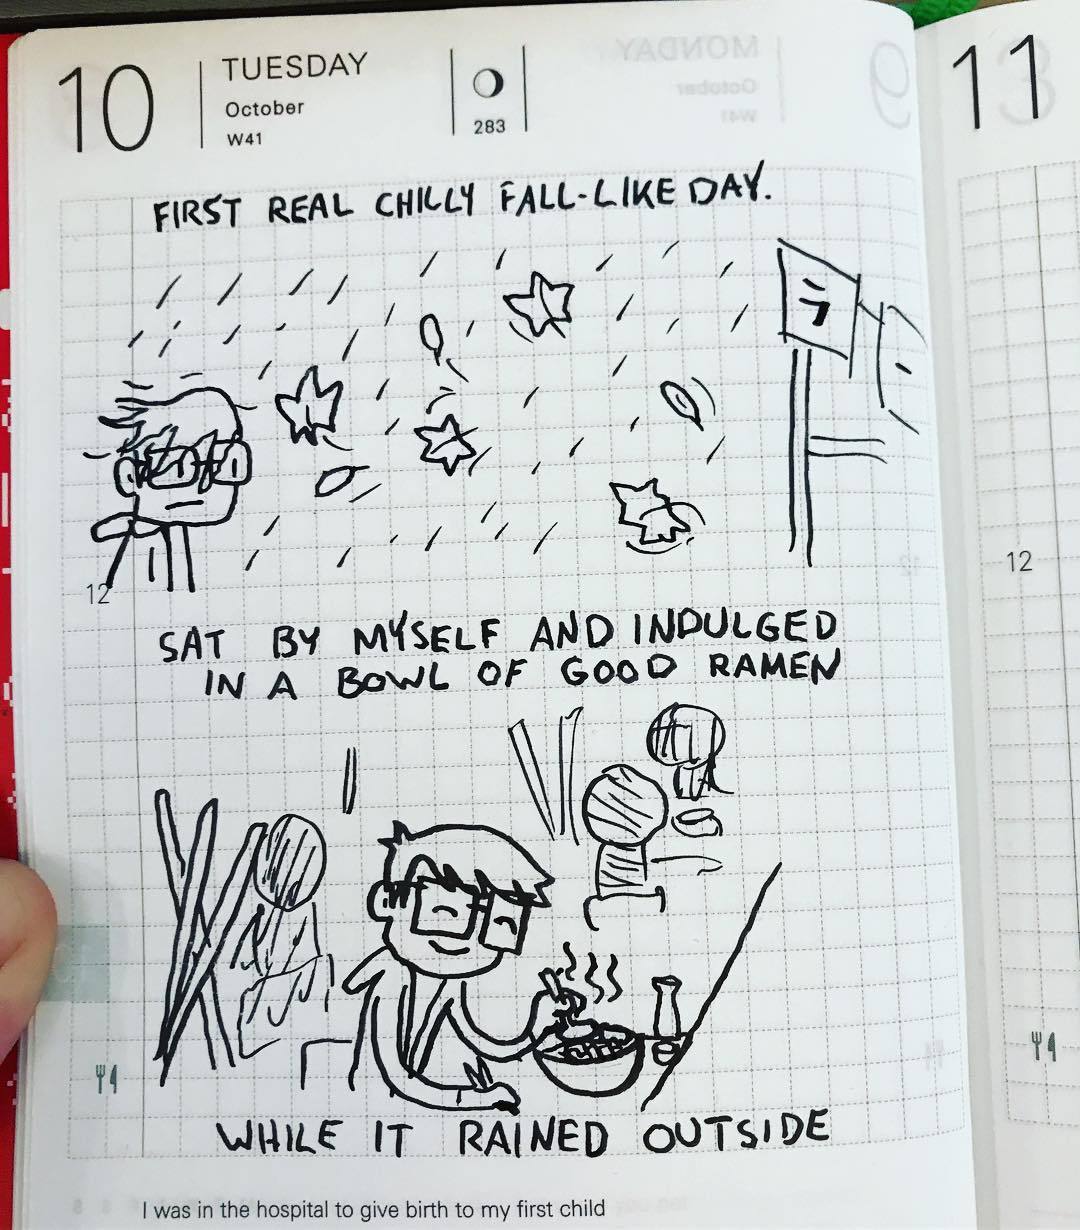 10
TUESDAY
October
W41
283
MONDAY
October
W41
9
11
FIRST REAL CHILLY FALL-LIKE DAY.
ラ
12
12
SAT BY MYSELF AND INDULGED
IN A BOWL OF GOOD RAMEN
WHILE IT RAINED OUTSIDE
I was in the hospital to give birth to my first child